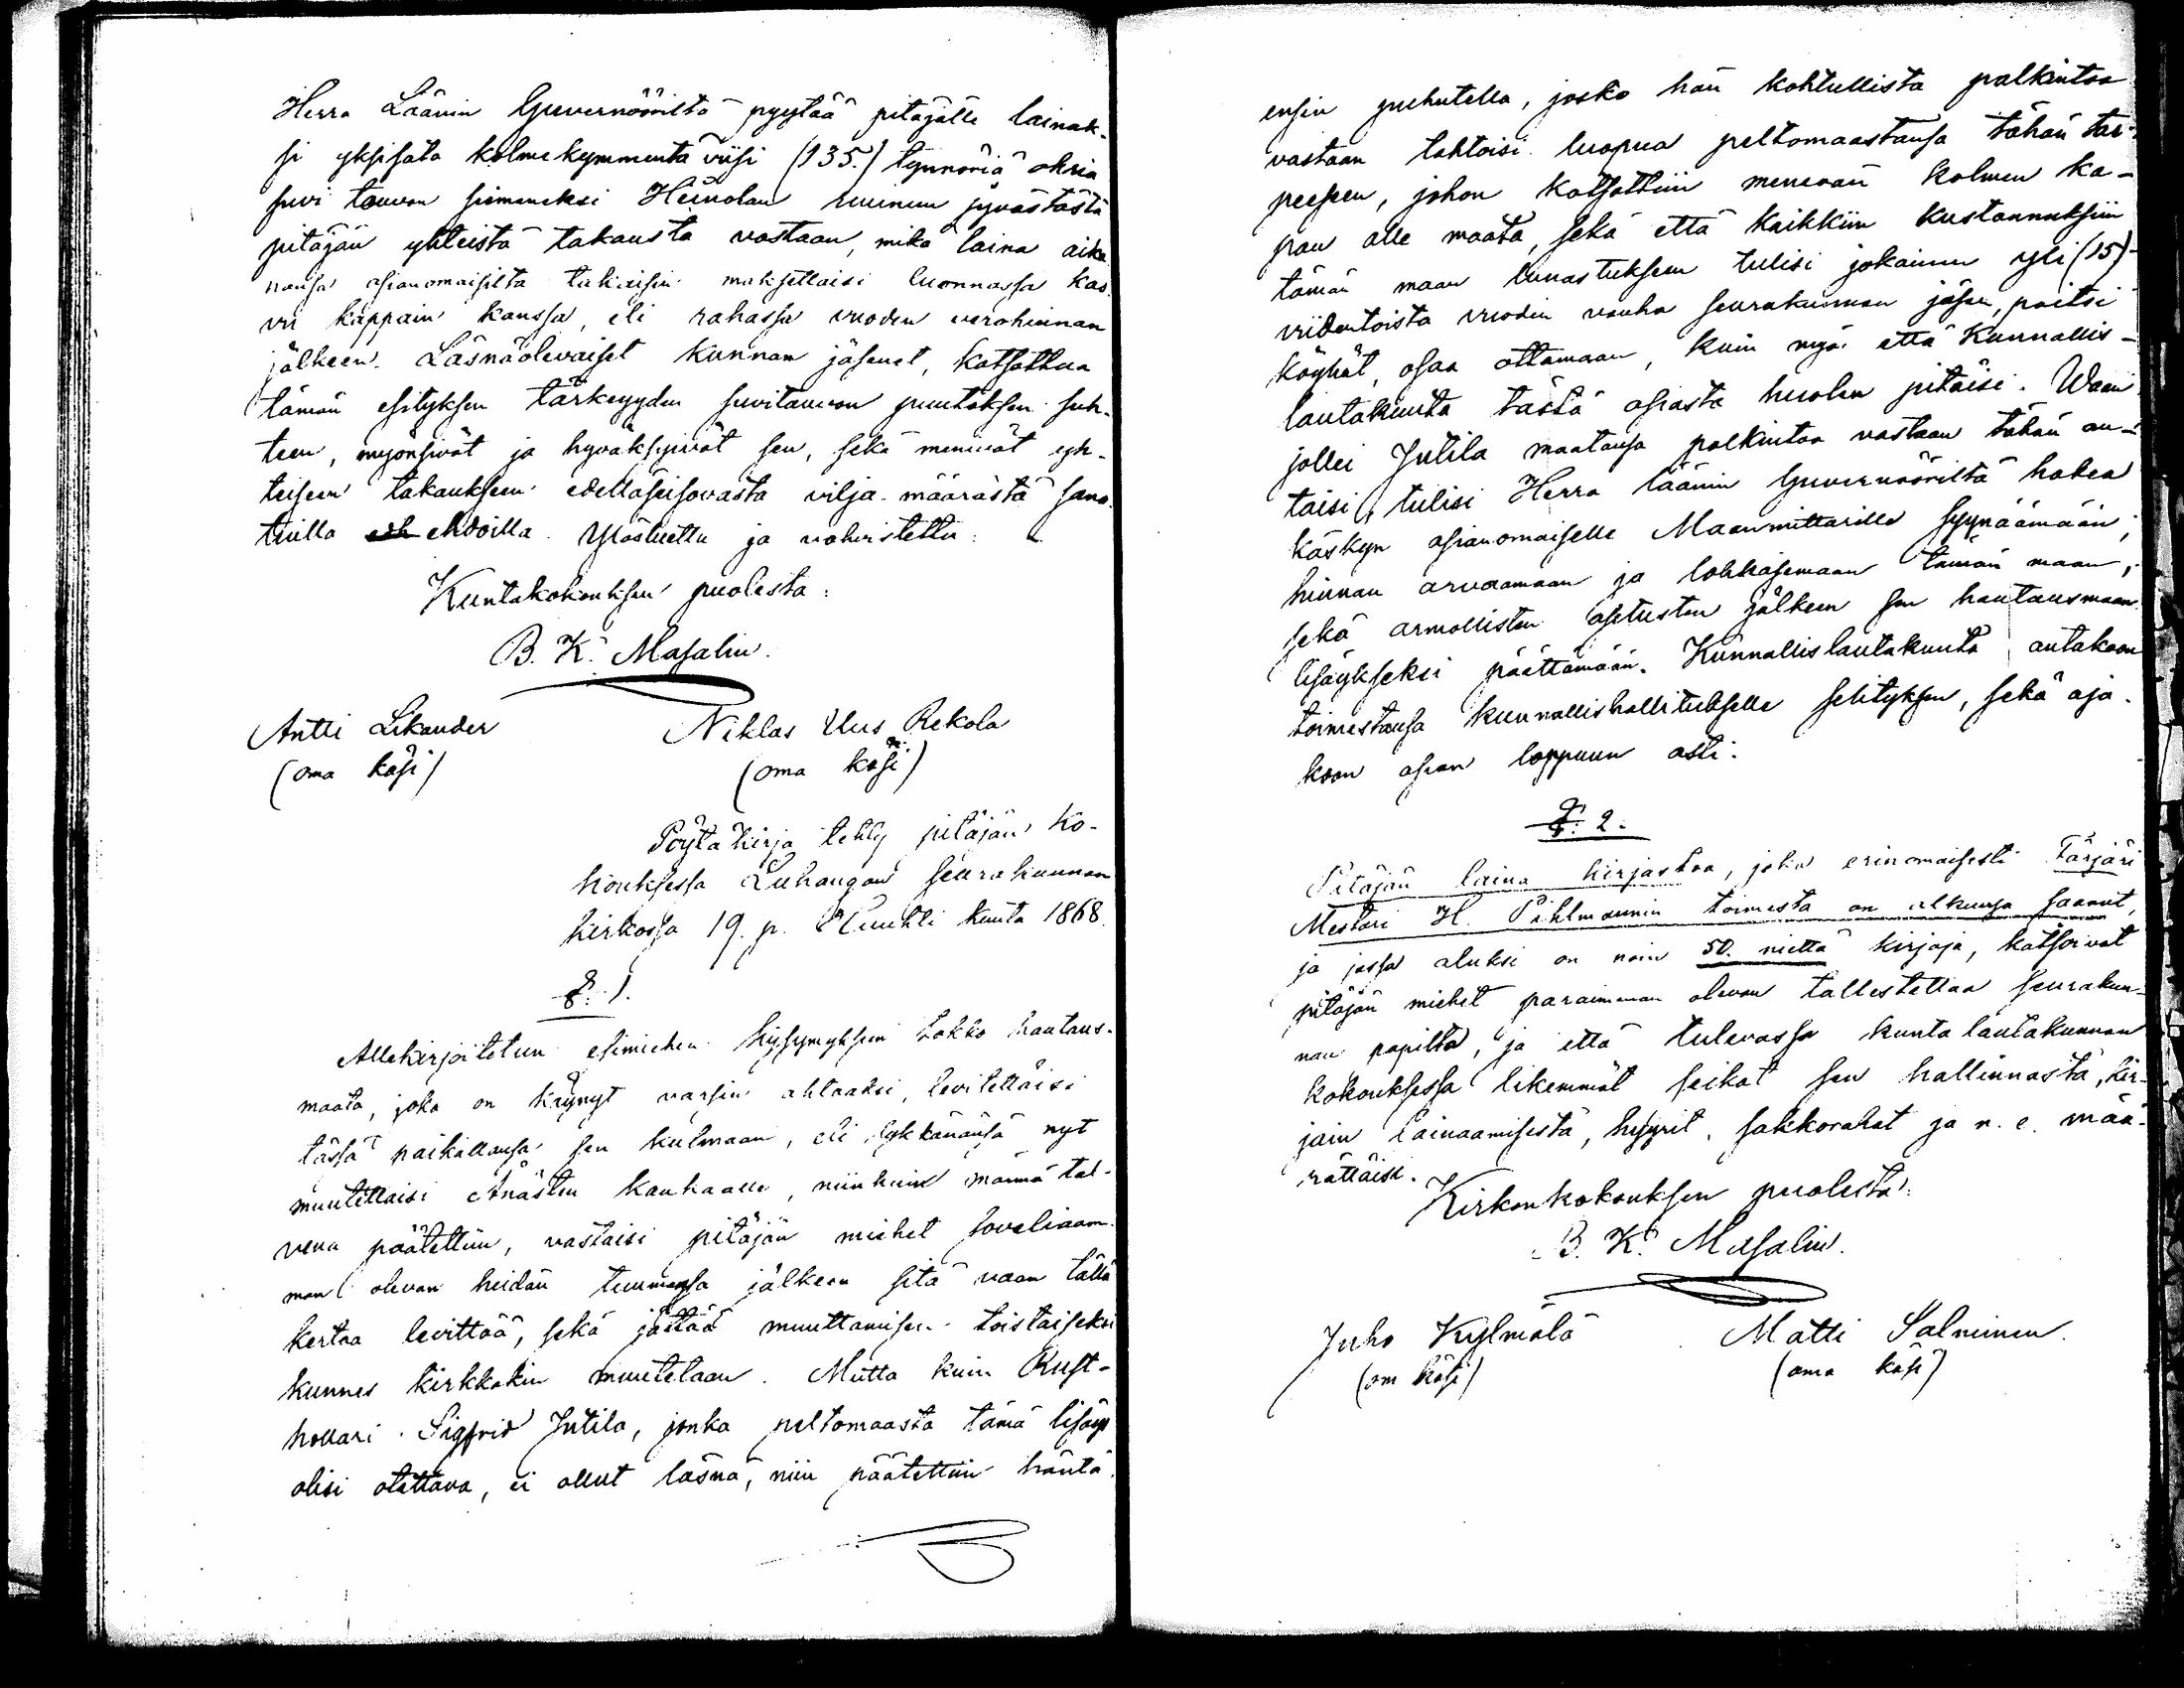 Herra Läänin Guvernööriltä pyytää pitäjälle lainak-
si yksisata kolmekymmentä viisi (135.) tynnöriä ohria
suvi touvon siemeneksi Heinolan kruunun jyvästöstä
pitäjän yhteistä takausta vastaan, mikä laina aika
nansa asianomaisilta takaisin maksettaisi luonnossa kas
vu kappain kanssa, eli rahassa vuoden verohinnan
jälkeen. Läsnäolevaiset kunnan jäsenet, katsottua
tämän esityksen tärkeyyden suvitouvon puutoksen suh-
teen, myönsivät ja hyväksyivät sen, sekä menivät yh-
teiseen takaukseen edelläseisovasta vilja-määrästä sano-
tuilla ehdoilla. Ylösluettu ja vahvistettu.
Kuntakokouksen puolesta:
B. K. Masalin.
Antti Likander Niklas Uus Rekola
(oma käsi) (oma käsi)
Pöytäkirja tehty pitäjän ko-
kouksessa Luhangan seurakunnan
kirkossa 19. p. Huuhti kuuta 1868.
§. 1.
Allekirjoitetun esimiehen kysymykseen tokko hautaus-
maata, joka on käynyt varsin ahtaaksi, levitettäisi
tässä paikallansa sen kulmaan, eli lykkänänsä nyt
muutettaisi Anästen kankaalle, niinkuin männä tal-
vena päätettiin, vastaisi pitäjän miehet soveliaam-
man olevan heidän tuumansa jälkeen sitä vaan tällä
kertaa levittää, sekä jättää muuttamisen toistaiseksi
kunnes kirkkokin muutetaan. Mutta kuin Rust-
hollari Sigfrid Jutila, jonka peltomaasta tämä lisäys
olisi otettava, ei ollut läsnä, niin päätettiin häntä
ensin puhutella, josko hän kohtullista palkintoa
vastaan tahtoisi luopua peltomaastansa tähän tar-
peeseen, johon katsottiin menevän kolmen ka-
pan alle maata, sekä että kaikkiin kustannuksiin
tämän maan lunastukseen tulisi jokainen yli (15)
viidentoista vuoden vanha seurakunnan jäsen, paitsi
köyhät, osaa ottamaan, kuin myös että Kunnallis-
lautakunta tästä asiasta huolen pitäisi. Waan
jollei Jutila maatansa palkintoa vastaan tähän an-
taisi, tulisi Herra läänin Guvernööriltä hakea
käskyn asianomaiselle Maanmittarille syynäämään,
hinnan arvaamaan ja lohkasemaan tämän maan,
sekä armollisten asetusten jälkeen sen hautausmaan
lisäykseksi päättämään. Kunnallislautakunta antakoon
toimestansa kunnallishallitukselle selityksen, sekä aja-
koon asian loppuun asti.
§. 2.
Pitäjän laina kirjastoa, joka erinomaisesti Färjäri
Mestari H. Pihlmannin toimesta on alkunsa saanut,
ja jossa aluksi on noin 50. niettä kirjoja, katsoivat
pitäjän miehet paraimman olevan tallestettaa seurakun-
nan papilta, ja että tulevassa kunta lautakunnan
kokouksessa likemmät seikat sen hallinnasta, kir-
jain lainaamisesta, hyyrit, sakkorahat ja n. e. mää-
rättäisi.
Kirkonkokouksen puolesta:
B. K. Masalin.
Juho Kylmälä Matti Salminen.
(om käsi) (oma käsi)